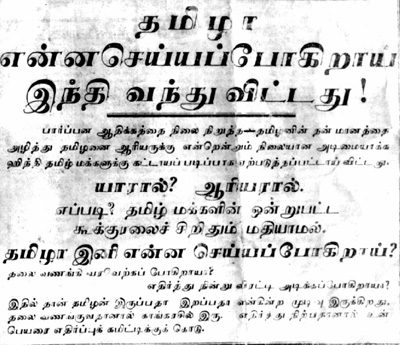 தமிழா
என்னசெய்யப்போகிறாய்
இந்தி வந்துவிட்டது!
பார்ப்பன ஆதிக்கத்தை நிலை நிறுத்த—தமிழனின் தன்மானத்தை
அழித்து தமிழனை ஆரியருக்கு என்றென்றும் நிலையான அடிமையாக்க
ஹிந்தி தமிழ் மக்களுக்கு கட்டாயப் படிப்பாக ஏற்படுத்தப்பட்டாய் விட்டது.
யாரால்? ஆரியரால்.
எப்படி? தமிழ் மக்களின் ஒன்றுபட்ட
கூக்குரலைச் சிறிதும் மதியாமல்.
தமிழா இனி என்ன செய்யப்போகிறாய்?
தலை வணங்கி வரவேற்கப் போகிறாயா?
எதிர்த்து நின்று விரட்டி அடிக்கப்போகிறாயா?
இதில் தான் தமிழன் இருப்பதா இறப்பதா என்கின்ற முடிவு இருக்கிறது.
தலை வணங்குவதானால் காங்கரசில் இரு. எதிர்த்து நிற்பதானால் உன்
பெயரை எதிர்ப்புக் கமிட்டிக்குக் கொடு.